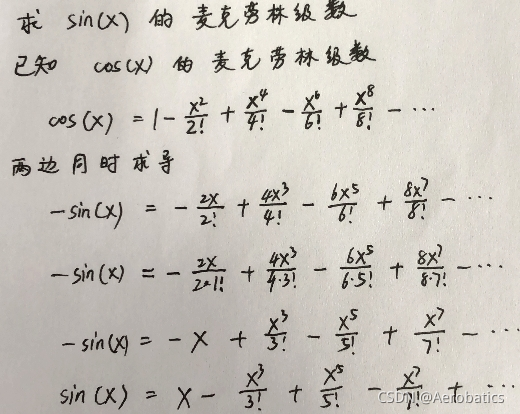 求 sin(x) 的 麦克劳林级数
已知 cos(x) 的 麦克劳林级数
cos(x) = 1 - x²/2! + x⁴/4! - x⁶/6! + x⁸/8! - ⋯
两边同时求导
-sin(x) = - 2x/2! + 4x³/4! - 6x⁵/6! + 8x⁷/8! - ⋯
-sin(x) = - 2x/2·1! + 4x³/4·3! - 6x⁵/6·5! + 8x⁷/8·7! - ⋯
-sin(x) = - x + x³/3! - x⁵/5! + x⁷/7! - ⋯
sin(x) = x - x³/3! + x⁵/5! - x⁷/7! + ⋯
CSDN @Aerobatics